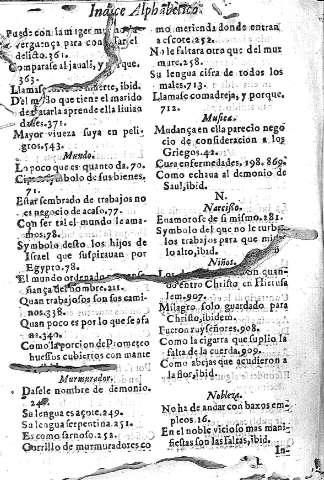 Indice Alphabetico.
Puede con la muger mas
verguença para
delicto.361.
Comparase al jauali, y que.
363.
Llamase muerte, ibid.
Del modo que tiene el marido
de tratarla aprende ella liuian
dades.371.
Mayor viueza suya en peli-
gros.543.
Mundo.
Lo poco que es quanto da.70.
simbolo de sus bienes.
71.
Estar sembrado de trabajos no
es negocio de acaso.77.
Con ser tal el mundo le ama-
mos.78.
Symbolo desto los hijos de
Israel que suspirauan por
Egypto.78.
El mundo ordenado
fiança del hombre.211.
Quan trabajosos son sus cami-
nos.338.
Quan poco es por lo que se afa
na.340.
Como la porcion de Prometeo
huessos cubiertos con mante
Murmurador.
Dasele nombre de demonio.
249.
Su lengua es açote.249.
Su lengua serpentina.251.
Es como sarnoso.252.
Corrillo de murmuradores co
mo merienda donde entran
a escote.252.
No le faltara otro que del mur
mure.258.
Su lengua cifra de todos los
males.713.
Llamase comadreja, y porque.
712.
Musica.
Mudança en ella parecio nego
cio de consideracion a los
Griegos.42.
Cura enfermedades. 198. 869.
Como echaua al demonio de
Saul, ibid.
N.
Narcisso.
Enamorose de si mismo.281.
Symbolo del que no le turba
los trabajos para que mire
lo alto, ibid.
Niños.
quan-
do entro Christo, en Hierusa
lem.907.
Milagro solo guardado para
Christo, ibidem.
Fueron ruyseñores.908.
Como la cigarra que suplio la
falta de la cuerda.909.
Como abejas que acudieron a
la flor, ibid.
Nobleza.
No ha de andar con baxos em-
pleos.16.
En el noble vicioso mas mani-
fiestas son las faltas, ibid.
In-